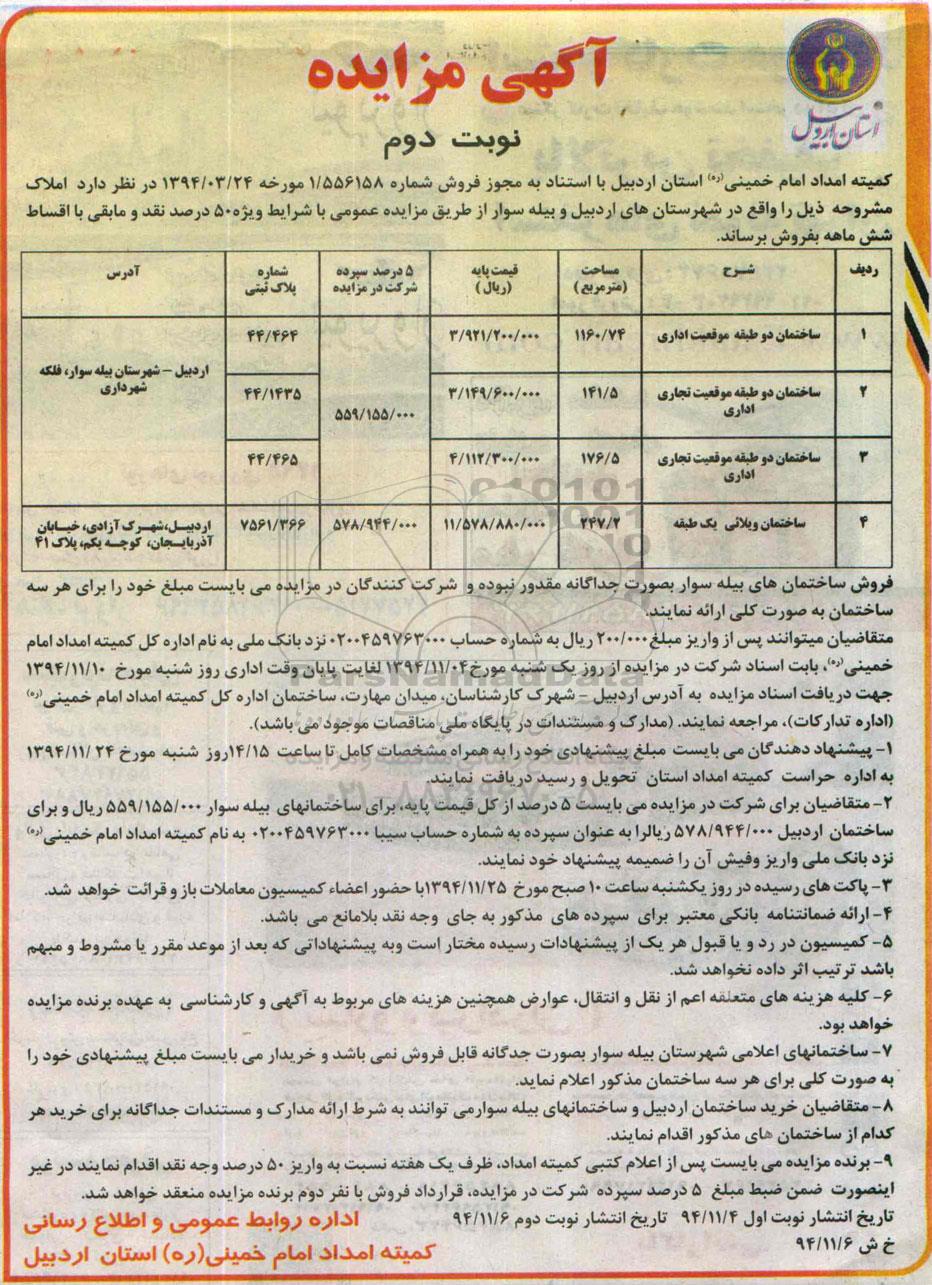 آگهی مزایده
استان اردبیل
نوبت دوم
کمیته امداد امام خمینی(ره) استان اردبیل با استناد به مجوز فروش شماره ۱/۵۵۶۱۵۸ مورخه ۱۳۹۴/۰۳/۲۴ در نظر دارد املاک
مشروحه ذیل را واقع در شهرستان های اردبیل و بیله سوار از طریق مزایده عمومی با شرایط ویژه۵۰ درصد نقد و مابقی با اقساط
شش ماهه بفروش برساند.
ردیف شــرح مساحت (مترمربع) قیمت پایه (ریال) ۵ درصد سپرده شرکت در مزایده شماره پلاک ثبتی آدرس
۱ ساختمان دو طبقه موقعیت اداری ۱۱۶۰/۷۴ ۳/۹۲۱/۲۰۰/۰۰۰ ۵۵۹/۱۵۵/۰۰۰ ۴۴/۴۶۴ اردبیل – شهرستان بیله سوار، فلکه شهرداری
۲ ساختمان دو طبقه موقعیت تجاری اداری ۱۴۱/۵ ۳/۱۴۹/۶۰۰/۰۰۰ ۴۴/۱۴۳۵
۳ ساختمان دو طبقه موقعیت تجاری اداری ۱۷۶/۵ ۴/۱۱۲/۳۰۰/۰۰۰ ۴۴/۴۶۵
۴ ساختمان ویلائی یک طبقه ۲۴۷/۲ ۱۱/۵۷۸/۸۸۰/۰۰۰ ۵۷۸/۹۴۴/۰۰۰ ۷۵۶۱/۳۶۶ اردبیـل،شهـرک آزادی، خیـابان آذربایـجان، کوچـه یکم، پلاک ۴۱
فروش ساختمان های بیله سوار بصورت جداگانه مقدور نبوده و شرکت کنندگان در مزایده می بایست مبلغ خود را برای هر سه
ساختمان به صورت کلی ارائه نمایند.
متقاضیان میتوانند پس از واریز مبلغ۲۰۰/۰۰۰ ریال به شماره حساب ۰۲۰۰۴۵۹۷۶۳۰۰۰ نزد بانک ملی به نام اداره کل کمیته امداد امام
خمینی(ره)، بابت اسناد شرکت در مزایده از روز یک شنبه مورخ۱۳۹۴/۱۱/۰۴ لغایت پایان وقت اداری روز شنبه مورخ ۱۳۹۴/۱۱/۱۰
جهت دریافت اسناد مزایده به آدرس اردبیل – شهرک کارشناسان، میدان مهارت، ساختمان اداره کل کمیته امداد امام خمینی(ره)
(اداره تدارکات)، مراجعه نمایند. (مدارک و مستندات در پایگاه ملی مناقصات موجود می باشد).
۱- پیشنهاد دهندگان می بایست مبلغ پیشنهادی خود را به همراه مشخصات کامل تا ساعت ۱۴/۱۵روز شنبه مورخ ۱۳۹۴/۱۱/۲۴
به اداره حراست کمیته امداد استان تحویل و رسید دریافت نمایند.
۲- متقاضیان برای شرکت در مزایده می بایست ۵ درصد از کل قیمت پایه، برای ساختمانهای بیله سوار ۵۵۹/۱۵۵/۰۰۰ ریال و برای
ساختمان اردبیل ۵۷۸/۹۴۴/۰۰۰ ریالرا به عنوان سپرده به شماره حساب سیبا ۰۲۰۰۴۵۹۷۶۳۰۰۰ به نام کمیته امداد امام خمینی(ره)
نزد بانک ملی واریز وفیش آن را ضمیمه پیشنهاد خود نمایند.
۳- پاکت های رسیده در روز یکشنبه ساعت ۱۰ صبح مورخ ۱۳۹۴/۱۱/۲۵با حضور اعضاء کمیسیون معاملات باز و قرائت خواهد شد.
۴- ارائه ضمانتنامه بانکی معتبر برای سپرده های مذکور به جای وجه نقد بلامانع می باشد.
۵- کمیسیون در رد و یا قبول هر یک از پیشنهادات رسیده مختار است وبه پیشنهاداتی که بعد از موعد مقرر یا مشروط و مبهم
باشد ترتیب اثر داده نخواهد شد.
۶- کلیه هزینه های متعلقه اعم از نقل و انتقال، عوارض همچنین هزینه های مربوط به آگهی و کارشناسی به عهده برنده مزایده
خواهد بود.
۷- ساختمانهای اعلامی شهرستان بیله سوار بصورت جدگانه قابل فروش نمی باشد و خریدار می بایست مبلغ پیشنهادی خود را
به صورت کلی برای هر سه ساختمان مذکور اعلام نماید.
۸- متقاضیان خرید ساختمان اردبیل و ساختمانهای بیله سوارمی توانند به شرط ارائه مدارک و مستندات جداگانه برای خرید هر
کدام از ساختمان های مذکور اقدام نمایند.
۹- برنده مزایده می بایست پس از اعلام کتبی کمیته امداد، ظرف یک هفته نسبت به واریز ۵۰ درصد وجه نقد اقدام نمایند در غیر
اینصورت ضمن ضبط مبلغ ۵ درصد سپرده شرکت در مزایده، قرارداد فروش با نفر دوم برنده مزایده منعقد خواهد شد.
تاریخ انتشار نوبت اول ۹۴/۱۱/۴ تاریخ انتشار نوبت دوم ۹۴/۱۱/۶
خ ش ۹۴/۱۱/۶
اداره روابط عمومی و اطلاع رسانی
کمیته امداد امام خمینی(ره) استان اردبیل
ParsNamadData